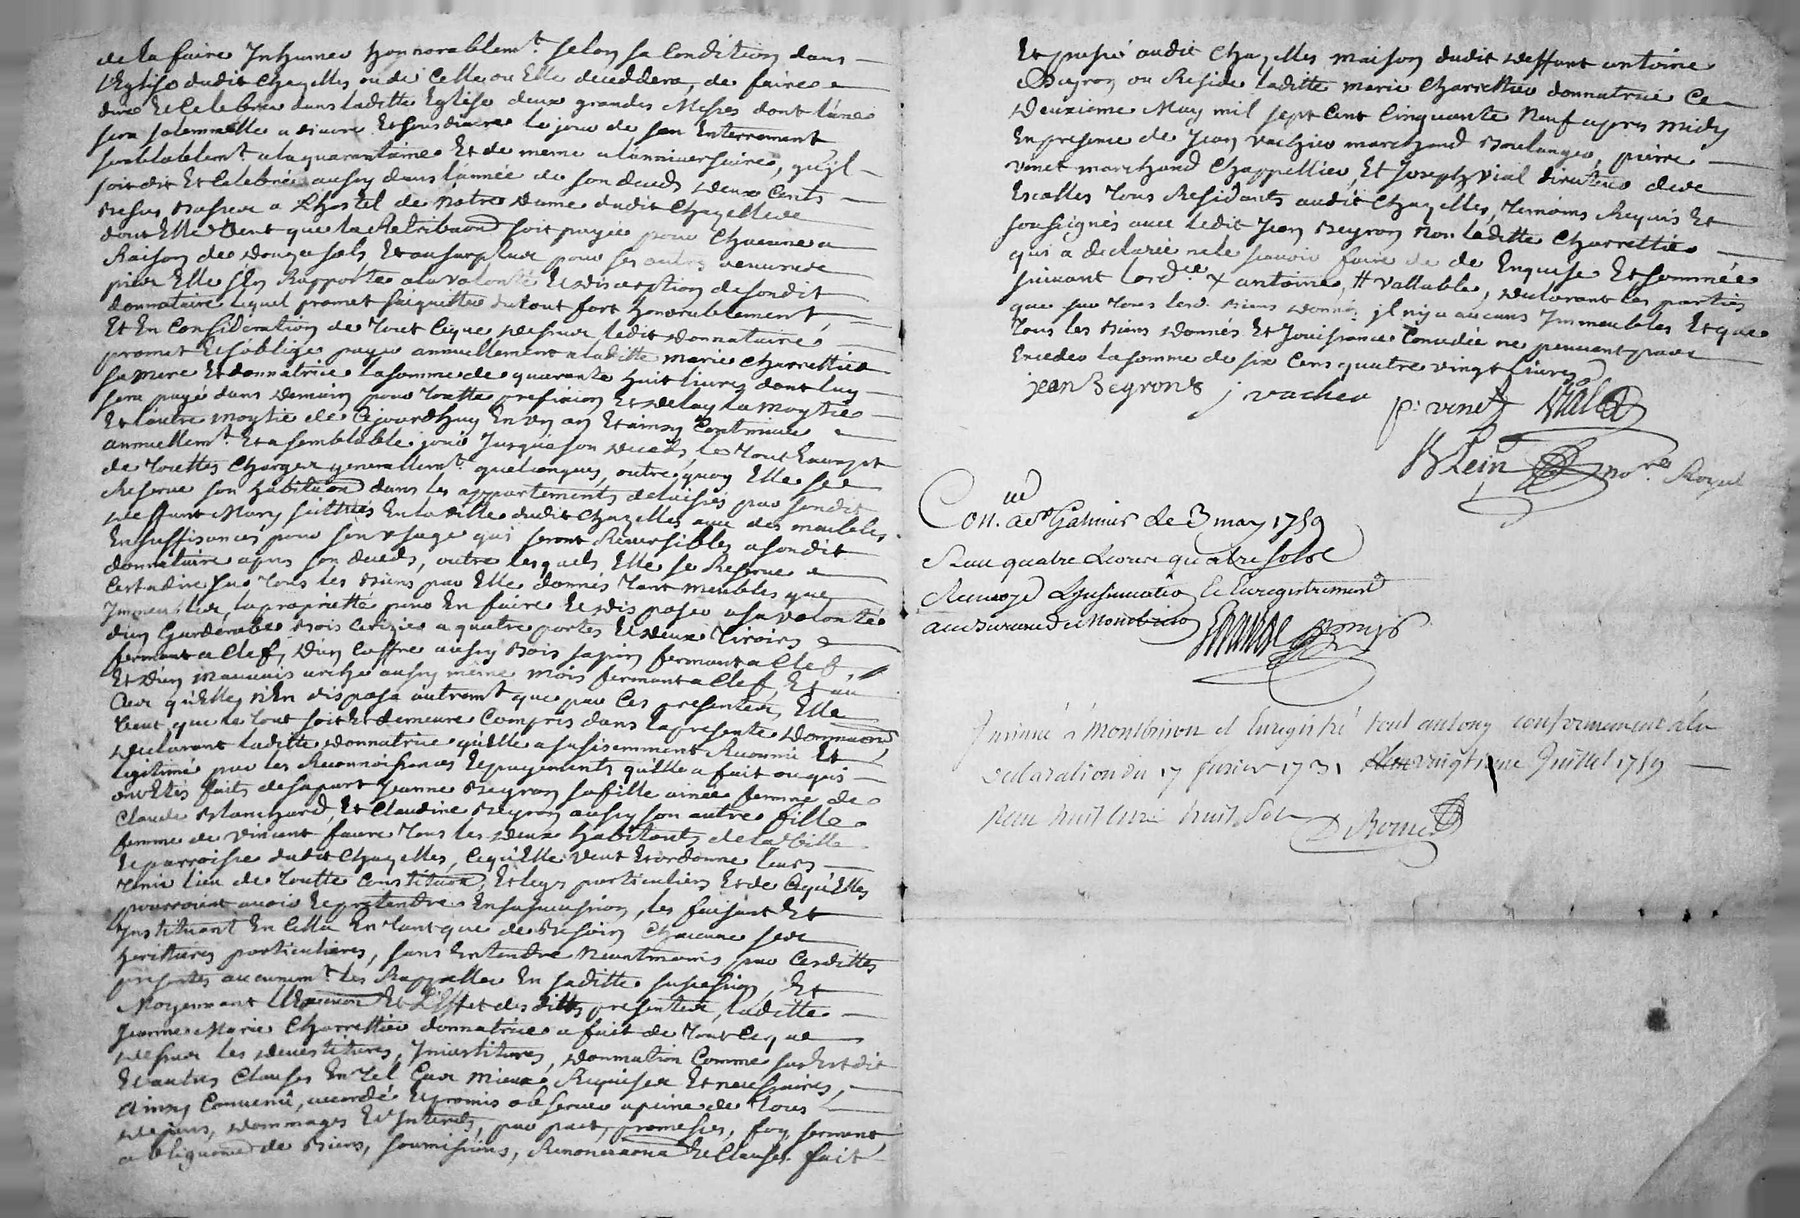 de la faire Inhumer honnorablemt. selon sa Condition dans
l'Eglise dudit Chazelles ou de Celle ou Elle deceddera, de faire
dire Et Celebrer dans laditte Eglise deux grandes Messes dont l'une
sera solemnelle a diacre Et sousdiacre le jour de son Enterrement
semblablemt. a la quarantaine Et de meme a l'anniversaire, qu'jl
soit dit Et Celebrée aussy dans l'année de son deceds deux Cents
Messes Basses a L'hostel de Notre Dame dudit Chazelles
dont Elle Veut que la Retribuon soit payée pour Chacune a
Raison de Douze sols Et au surplus pour ses autres œuvres
pies Elle s'En Rapporte a la volonté Et discretion de sondit
donnataire lequel promet s'aiquitter du tout fort honorablement,
Et En Considération de Tout Ceque dessus ledit donnataire
promet Et s'oblige payer annuellement a laditte marie Charrettier
sa mere Et donnatrice la somme de quarante huit livres dont luy
sera payé dans demain pour Toutte prefixion Et delay la Moytié
Et l'autre moytié de Cejourdhuy En un an Et ainsy Continuer
annuellemt. Et a semblable jour Jusqu'a son deceds, le Tout Exempt
de Touttes Charges generallemt. quelconques, outre quoy Elle se
Reserve son habitaon dans les appartements delaissés par sondit
deffunt Mary scittués En la ville dudit Chazelles avec des meubles
En suffisances pour son usage qui seront Reversibles a sondit
donnataire apres son deceds, outre lesquels Elle se Reserve
Cest a dire sur Tous les Biens par Elle donnés Tant meubles que
Jmmeubles la proprietté pour En faire Et disposer a sa volonté
d'un Garderobe Bois Cerizier a quatre portes Et deux Tiroirs
fermant a Clef, D'un Coffre aussy Bois sapin fermant a Clef,
Et D'un mauvais arche aussy même Bois fermant a Clef, Et au
Cas qu'Elle n'En dispose autremt que par Ces presentes, Elle
Veut que le Tout soit Et demeure Compris dans la presente Donnaon
Declarant laditte donnatrice qu'Elle a sufisemment Reconnu Et
legitimé par les Reconnoissances Et payements qu'Elle a fait ou qui
ont Etés faits de sa part Jeanne Beyron sa fille ainée femme de
Claude Blanchard, Et Claudine Beyron aussy son autre fille
femme de Vincent faure Tous les deux habitants de la Ville
Et parroisse dudit Chazelles, Ce qu'Elle veut Et ordonne leurs
Tenir lieu de Toutte Constituon, Et legs particuliers Et de Ce qu'Elles
pourroient avoir Et prétendre En sa sucession, les faisant Et
Jnstituant En Cella En Tant que de Besoin Chacune ses
heritieres particulieres, sans Entendre Neantmoins par Cesdittes
presentes aucunemt. les Rappeller En saditte sucession, Et
Moyennant l'Exeuon Et L'Effet des dittes presentes, laditte
Jeanne Marie Charrettier donnatrice a fait de Tout Ceque
dessus les devestitures, Jnvestitures, donnation Comme sus Est dit
Et autres Clauses En Tel Cas Mieux Requises Et necessaires,
Ainsy Convenu, accordé Et promis observer a peine de Tous
depens, dommages Et Interets, par pact, promesses, foy, serment,
obligaons de Biens, soumissions, Renonciaons Et Clauses. fait
Et passé audit Chazelles maison dudit deffunt antoine
Beyron ou Reside laditte marie Charrettier donnatrice Ce
Deuxieme May mil sept Cent Cinquante Neuf apres midy
En presence de Jean vacher marchand Boulanger, pierre
vinet marchand Chappellier, Et Joseph vial directeur des
Escolles Tous Residants audit Chazelles, Temoins Requis Et
soussignés avec ledit Jean Beyron Non laditte Charrettier
qui a declarée ne le scavoir faire de ce Enquise Et sommée
suivant lordce X antoine, # vallable, declarant les parties
que sur Tous lesd. Biens donnés jl ny a aucuns Jmmeubles Et que
Tous les Biens donnés Et Jouissance Concedée ne peuvent pas
Exceder la somme de six Cens quatre vingt Livres
jean Beyron j vacher p. vinet Vial
Klein nore. Royal
Con.lé a St Galmier le 3 may 1759
Reçu quatre livres quatre sols
Renvoyé L'Insinuation et Enregistrement
au Bureau de Montbrison
Insinué à Montbrison et Enregistré tout au long conformement à la
declaration du 17 fevrier 1731 le vingt une Juillet 1759
Reçu huit livres huit sols